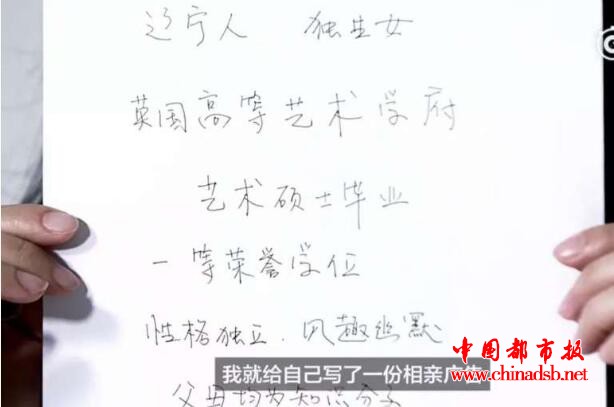 辽宁人 独生女
英国高等艺术学府
艺术硕士毕业
一等荣誉学位
性格独立.风趣幽默
我就给自己写了一份相亲广告
父母均为知识分子
中国都市报
www.chinadsb.net